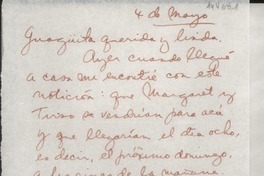 4 de Mayo
Guagüita querida y linda.
Ayer cuando llegué
a casa me encontré con este
notición: que Margaret y
vendrían para acá
y que llegarían el día ocho,
es decir, el próximo domingo,
a las cinco de la mañana